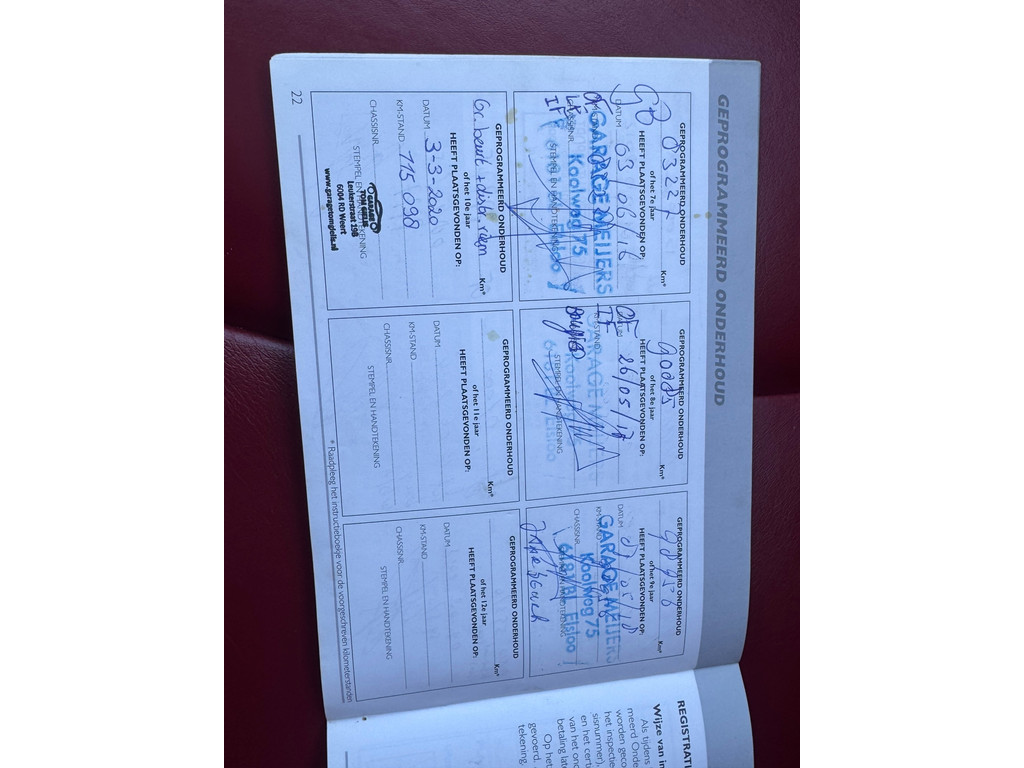 GEPROGRAMMEERD ONDERHOUD
GEPROGRAMMEERD ONDERHOUD
of het 7e jaar
Km*
HEEFT PLAATSGEVONDEN OP:
DATUM 03/06/16
GARAGE MEIJERS
Koolweg 75
Elsloo
GEPROGRAMMEERD ONDERHOUD
of het 8e jaar
Km*
HEEFT PLAATSGEVONDEN OP:
DATUM 26/05/17
KM-STAND
GARAGE
STEMPEL EN HANDTEKENING
Elsloo
GEPROGRAMMEERD ONDERHOUD
98456
of het 9e jaar
Km*
HEEFT PLAATSGEVONDEN OP:
DATUM
KM-STAND
GARAGE MEIJERS
CHASSISNR.
Koolweg 75
Elsloo
GEPROGRAMMEERD ONDERHOUD
Gr. beurt + distr. riem Km*
of het 10e jaar
HEEFT PLAATSGEVONDEN OP:
DATUM 3-3-2020
KM-STAND 115 098
CHASSISNR.
STEMPEL EN HANDTEKENING
GARAGE
TOM GELIS
Leukerstraat 19B
6004 RD Weert
www.garagetomgelis.nl
GEPROGRAMMEERD ONDERHOUD
Km*
of het 11e jaar
HEEFT PLAATSGEVONDEN OP:
DATUM
KM-STAND
CHASSISNR.
STEMPEL EN HANDTEKENING
GEPROGRAMMEERD ONDERHOUD
Km*
of het 12e jaar
HEEFT PLAATSGEVONDEN OP:
DATUM
KM-STAND
CHASSISNR.
STEMPEL EN HANDTEKENING
* Raadpleeg het instructieboekje voor de voorgeschreven kilometerstanden
22
REGISTRATI
Wijze van in
Als tijdens
meerd Onde
worden geco
het inspectie
sisnummer).
en het certi
van het onc
betaling late
Op het
gevoerd.
tekening.